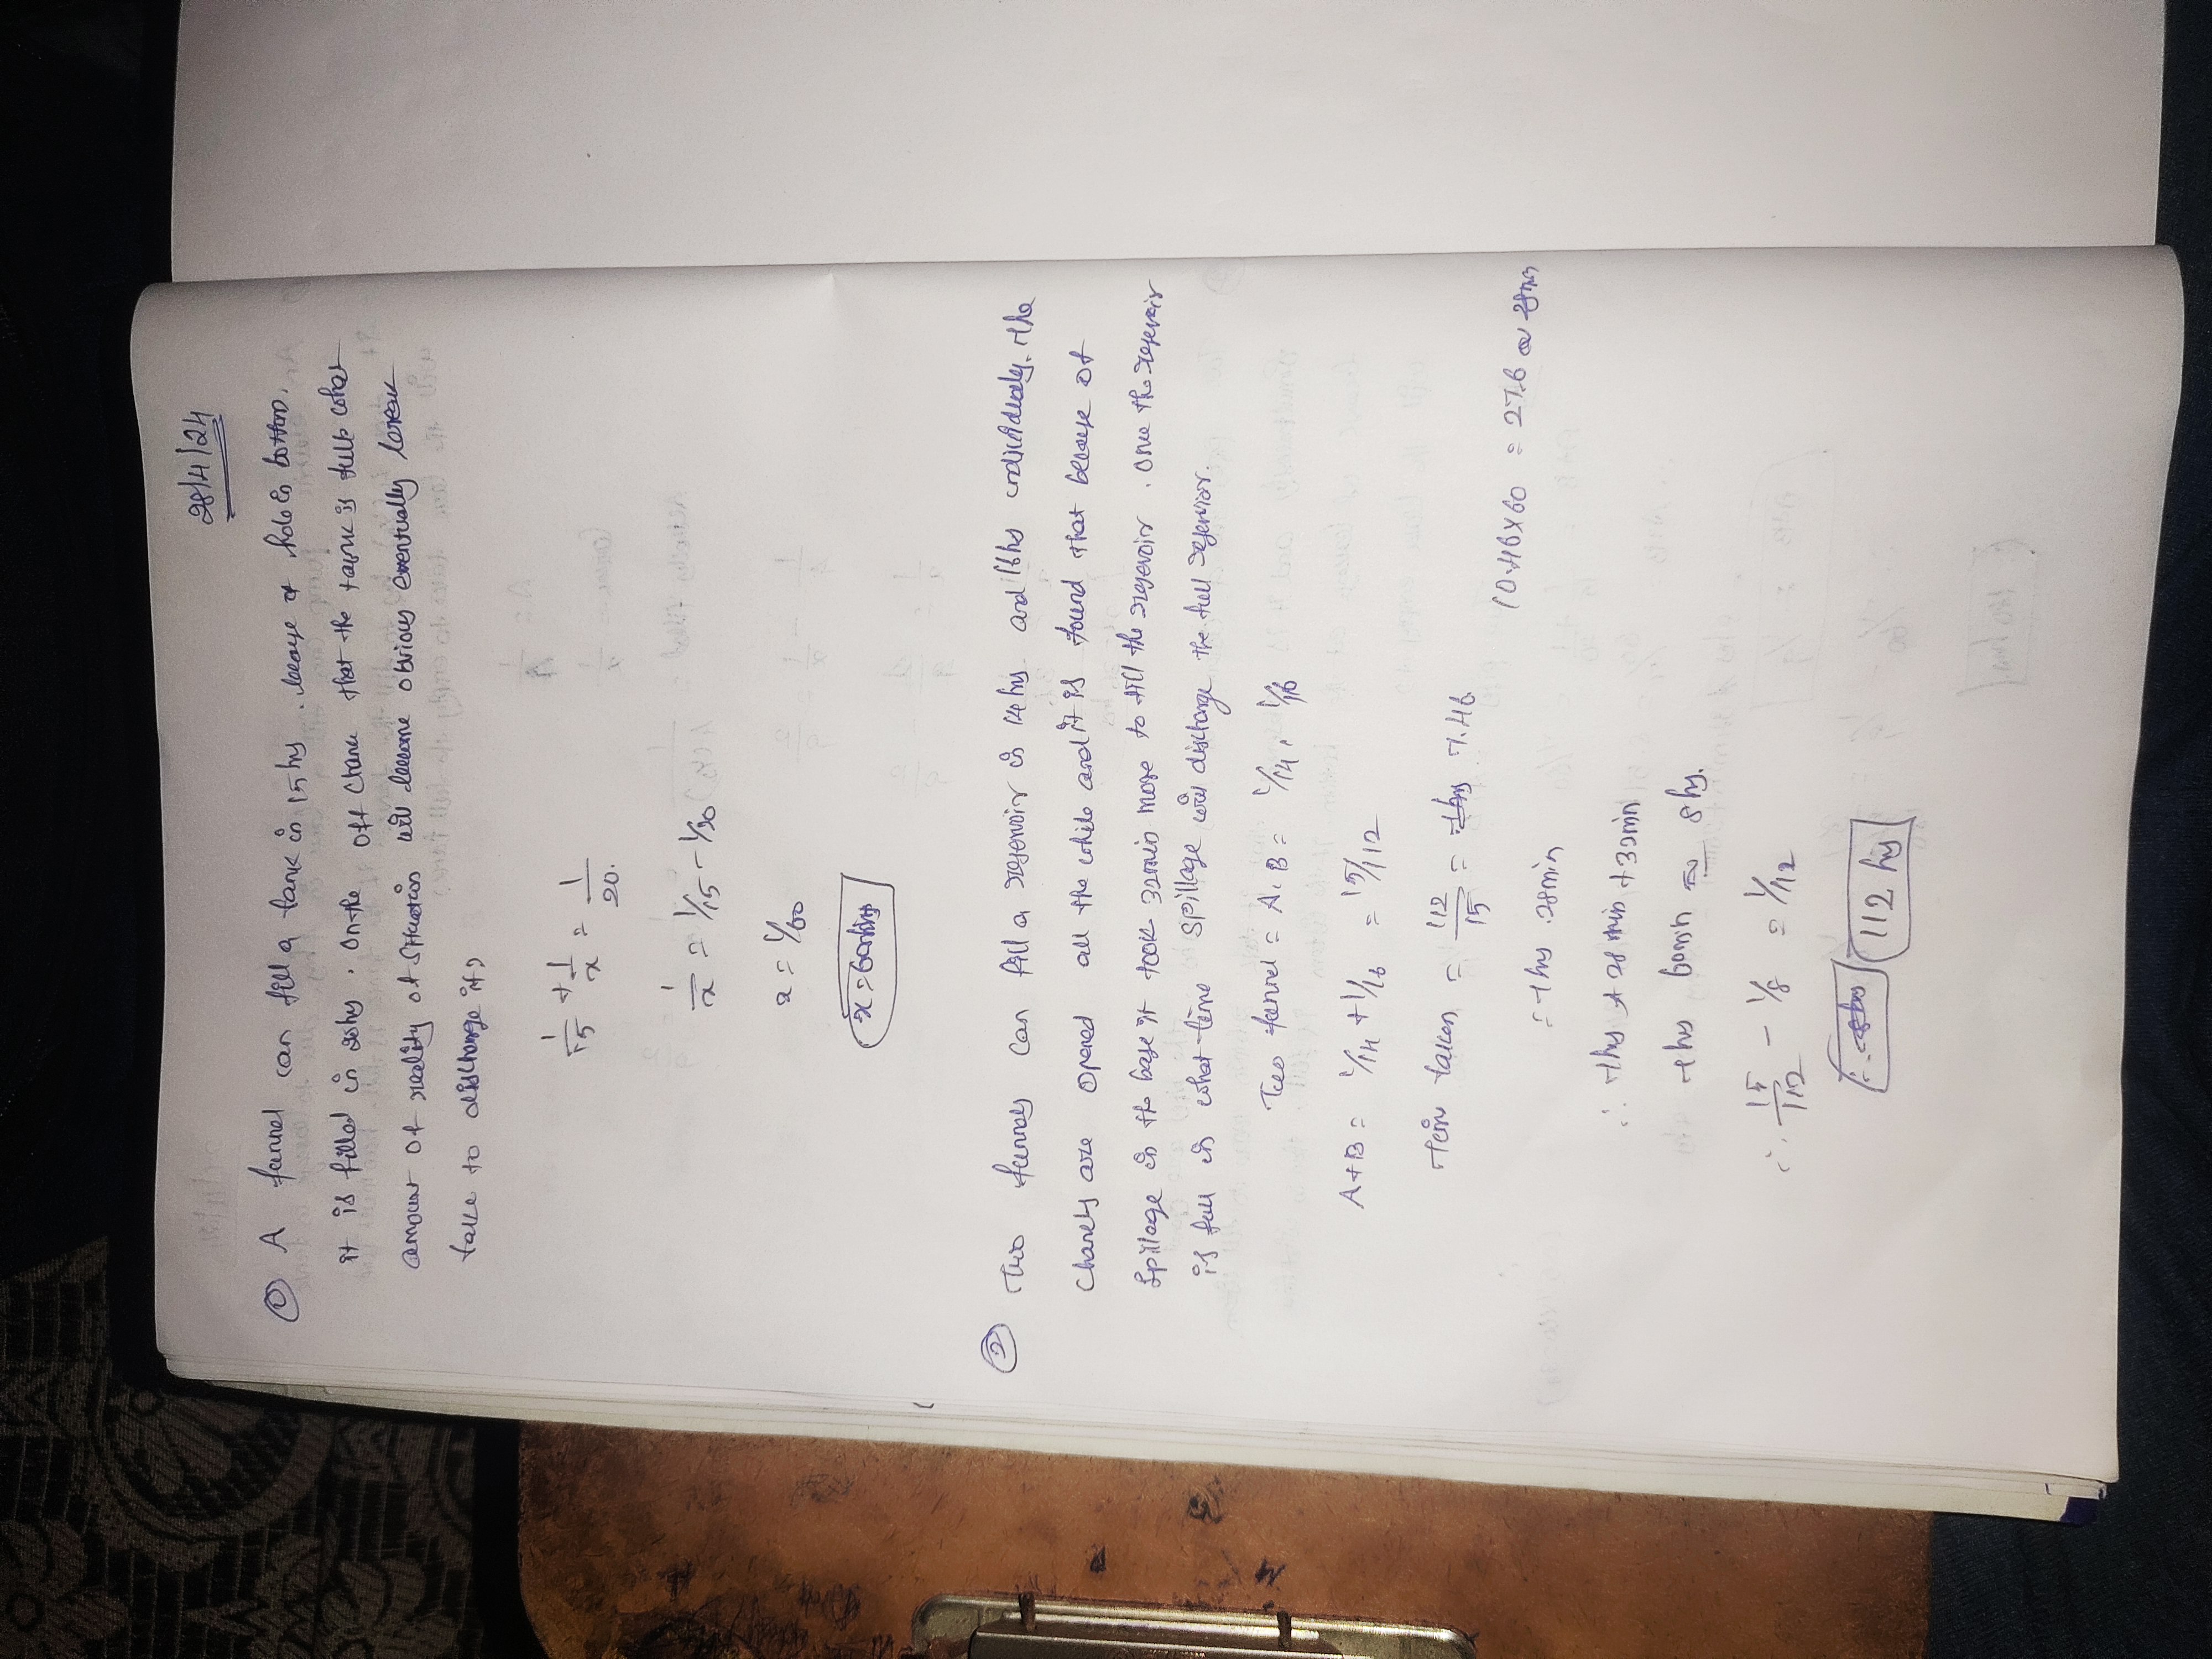 28/4/24
① A funnel can fill a tank in 15 hrs . becaue of hole in bottom,
it is filled in 20 hrs . On the off chance that the tank is full what
amount of reality of situation will become obvious eventually break
take to discharge it?
1/15 + 1/x = 1/20.
1/x = 1/15 - 1/20
x = 1/60
x = 60 hrs
② Two funnels can fill a reservoir in 14 hrs and 16 hrs individually. The
are opened all the while and it is found that becaue of
spillage in the base it took 32 min more to fill the reservoir . once the reservoir
is full in what time spillage will discharge the full reservior.
Two funnel = A, B = 1/14, 1/16
A+B = 1/14 + 1/16 = 15/112
Time taken = 112/15 = 7.46
0.46x60 = 27.6 or 28min
= 7 hrs .28min
∴ 7 hrs + 28 min + 32min
7 hrs 60min ≈ 8 hrs.
∴ 15/112 - 1/8 = 1/112
112 hrs